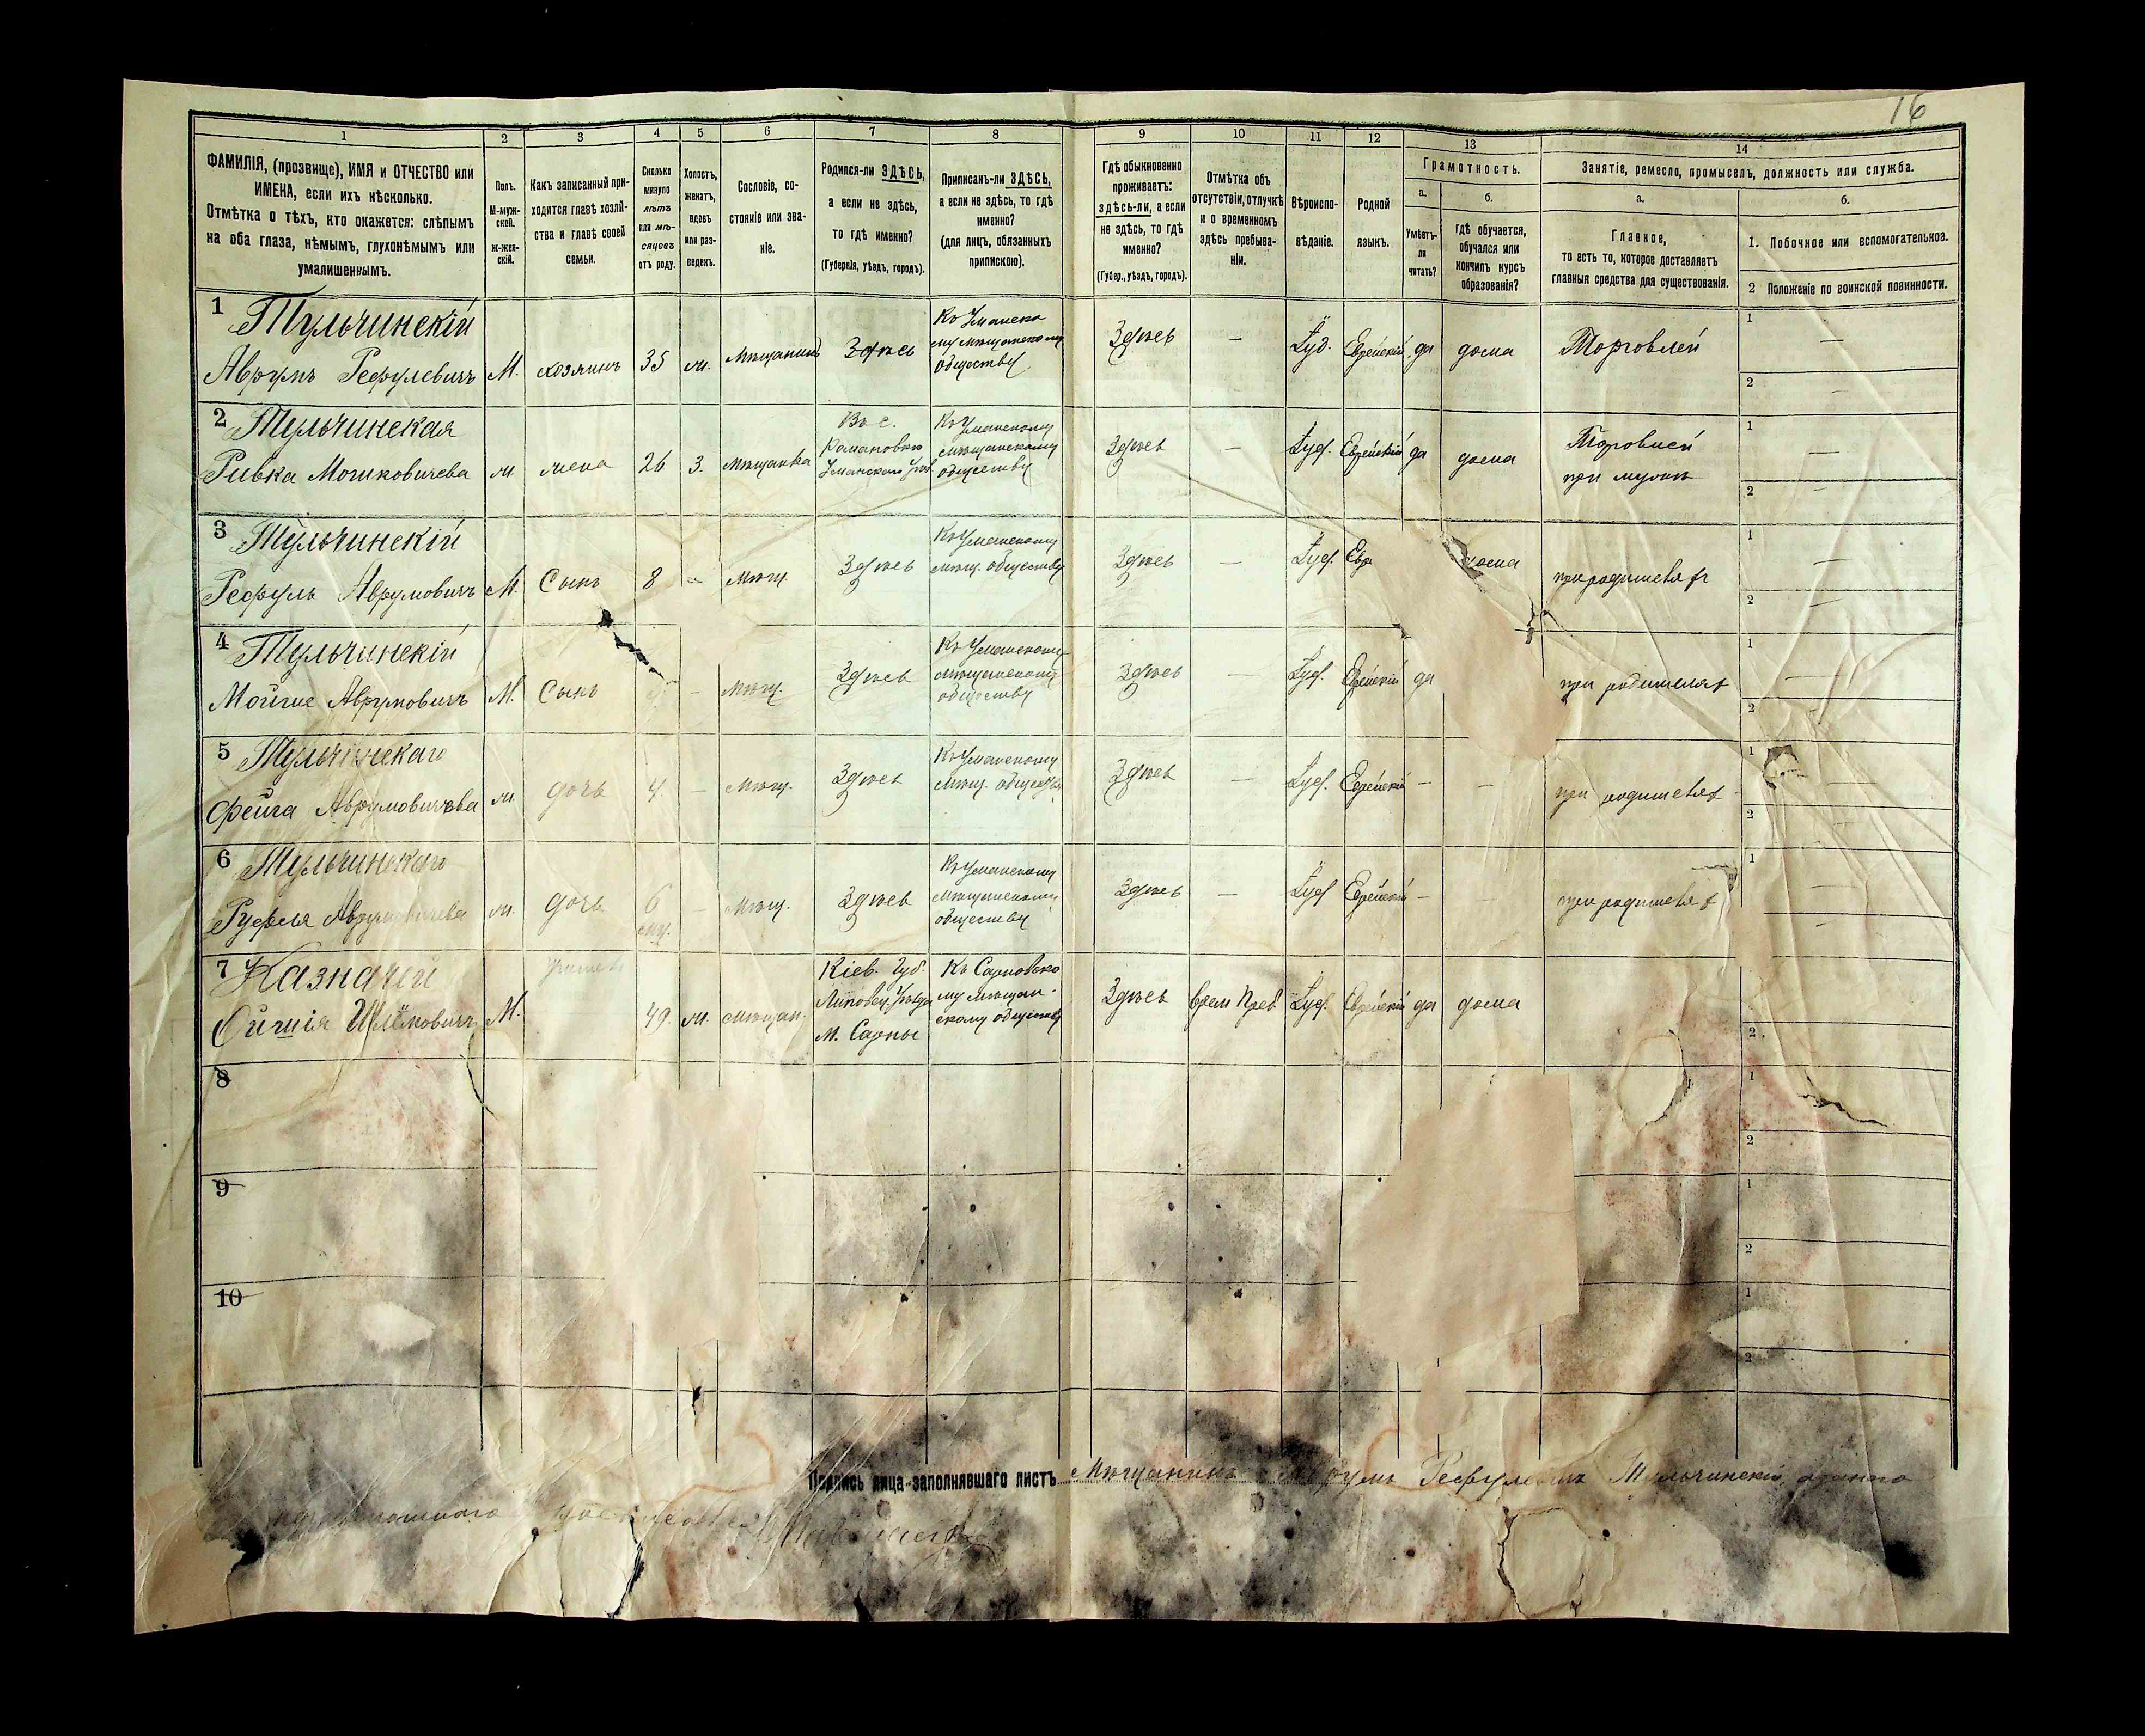 16
1
2
3
4
5
6
7
8
9
10
11
12
13
14
ФАМИЛІЯ, (прозвище), ИМЯ и ОТЧЕСТВО или
ИМЕНА, если ихъ нѣсколько.
Отмѣтка о тѣхъ, кто окажется: слѣпымъ
на оба глаза, нѣмымъ, глухонѣмымъ или
умалишеннымъ.
Полъ.
М-муж-
ской.
ж-жен-
скій.
Какъ записанный при-
ходится главѣ хозяй-
ства и главѣ своей
семьи.
Сколько
минуло
лѣтъ
или мѣ-
сяцевъ
отъ роду.
Холостъ,
женатъ,
вдовъ
или раз-
веденъ.
Сословіе, со-
стояніе или зва-
ніе.
Родился-ли ЗДѢСЬ,
а если не здѣсь,
то гдѣ именно?
(Губернія, уѣздъ, городъ).
Приписанъ-ли ЗДѢСЬ,
а если не здѣсь, то гдѣ
именно?
(для лицъ, обязанныхъ
припискою).
Гдѣ обыкновенно
проживаетъ:
здѣсь-ли, а если
не здѣсь, то гдѣ
именно?
(Губер., уѣздъ, городъ).
Отмѣтка объ
отсутствіи, отлучкѣ
и о временномъ
здѣсь пребыва-
ніи.
Вѣроиспо-
вѣданіе.
Родной
языкъ.
Грамотность.
а.
Умѣетъ-
ли
читать?
б.
гдѣ обучается,
обучался или
кончилъ курсъ
образованія?
Занятіе, ремесло, промыселъ, должность или служба.
а.
Главное,
то есть то, которое доставляетъ
главныя средства для существованія.
б.
1. Побочное или вспомогательное.
2 Положеніе по воинской повинности.
1 Тульчинскій
Аврумъ Рефулевичъ
М.
хозяинъ
35
ж.
Мѣщанинъ
Здѣсь
Къ Уманско
му мѣщанскому
обществу
Здѣсь
—
Іуд.
Еврейскій
да
дома
Торговлей
1 —
2 —
2 Тульчинская
Ривка Мошковичева
ж
жена
26
З.
мѣщанка
Въ с.
Романовкѣ
Уманскаго Уѣз.
Къ Уманскому
мѣщанскому
обществу
Здѣсь
—
Іуд.
Еврейскій
да
дома
Торовлей
при мужѣ
1 —
2 —
3 Тульчинскій
Рефуль Аврумовичъ
М.
Сынъ
8
-
мѣщ.
Здѣсь
Къ Уманскому
мѣщ. обществу
Здѣсь
—
Іуд.
Евр
дома
при родителях
1 —
2 —
4 Тульчинскій
Мойше Аврумовичъ
М.
Сынъ
-
мѣщ.
Здѣсь
Къ Уманскому
мѣщанскому
обществу
Здѣсь
—
Іуд.
Еврейскій
да
при родителях
1 —
2 —
5 Тульчинскаго
Фейга Аврумовичева
ж.
дочь
4.
—
мѣщ.
Здѣсь
Къ Уманскому
мѣщ. обществу
Здѣсь
—
Іуд.
Еврейскій
—
—
при родителях
1 —
2 —
6 Тульчинскаго
Руфля Аврумовичева
ж.
дочь
6
мц.
—
Мѣщ.
Здѣсь
Къ Уманскому
мѣщанскому
обществу
Здѣсь
—
Іуд
Еврейскій
—
при родителях
1 —
—
7 Казначей
Ойшія Шлёмовичъ
М.
49.
ж.
мѣщан.
Кіев. Губ.
Липовец. Уѣзда
М. Сарны
Къ Сарновско
му мѣщан-
скому обществу
Здѣсь
врем преб
Іуд.
Еврейскій
да
дома
2.
8
1
2
9
1
2
10
1
2
Подпись лица-заполнявшаго листъ Мѣщанинъ Аврумъ Рефулевичъ Тульчинскій, а